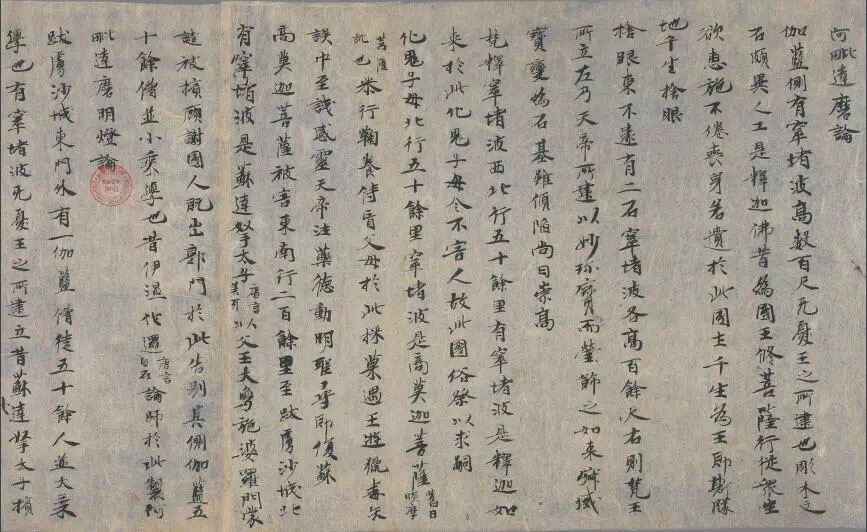 阿毗達磨論
伽藍側有窣堵波高數百尺无憂王之所建也彫木文
石頗異人工是釋迦佛昔為國王修菩薩行從衆生
欲惠施不倦喪身若遺於此國土千生為王即斯勝
地千生捨眼
捨眼東不遠有二石窣堵波各高百餘尺右則梵王
所立左乃天帝所建以妙珎寶而瑩飾之如來寂滅
寶變為石基雖傾陷尚曰崇高
梵釋窣堵波西北行五十餘里有窣堵波是釋迦如
來於此化鬼子母令不害人故此國俗祭以求嗣
化鬼子母北行五十餘里窣堵波是商莫迦菩薩舊曰睒摩
菩薩訛也恭行鞠養侍盲父母於此採菓遇王遊獵毒矢
誤中至誠感靈天帝注藥德動明聖尋即復蘇
商莫迦菩薩被害東南行二百餘里至跋虜沙城北
有窣堵波是蘇達拏太子唐言牙以父王大象施婆羅門蒙
譴被擯顧謝國人既出郭門於此告別其側伽藍五
十餘僧並小乘學也昔伊濕伐邏唐言自在論師於此製阿
毗達磨明燈論
跋虜沙城東門外有一伽藍僧徒五十餘人並大乘
學也有窣堵波无憂王之所建立昔蘇達拏太子擯